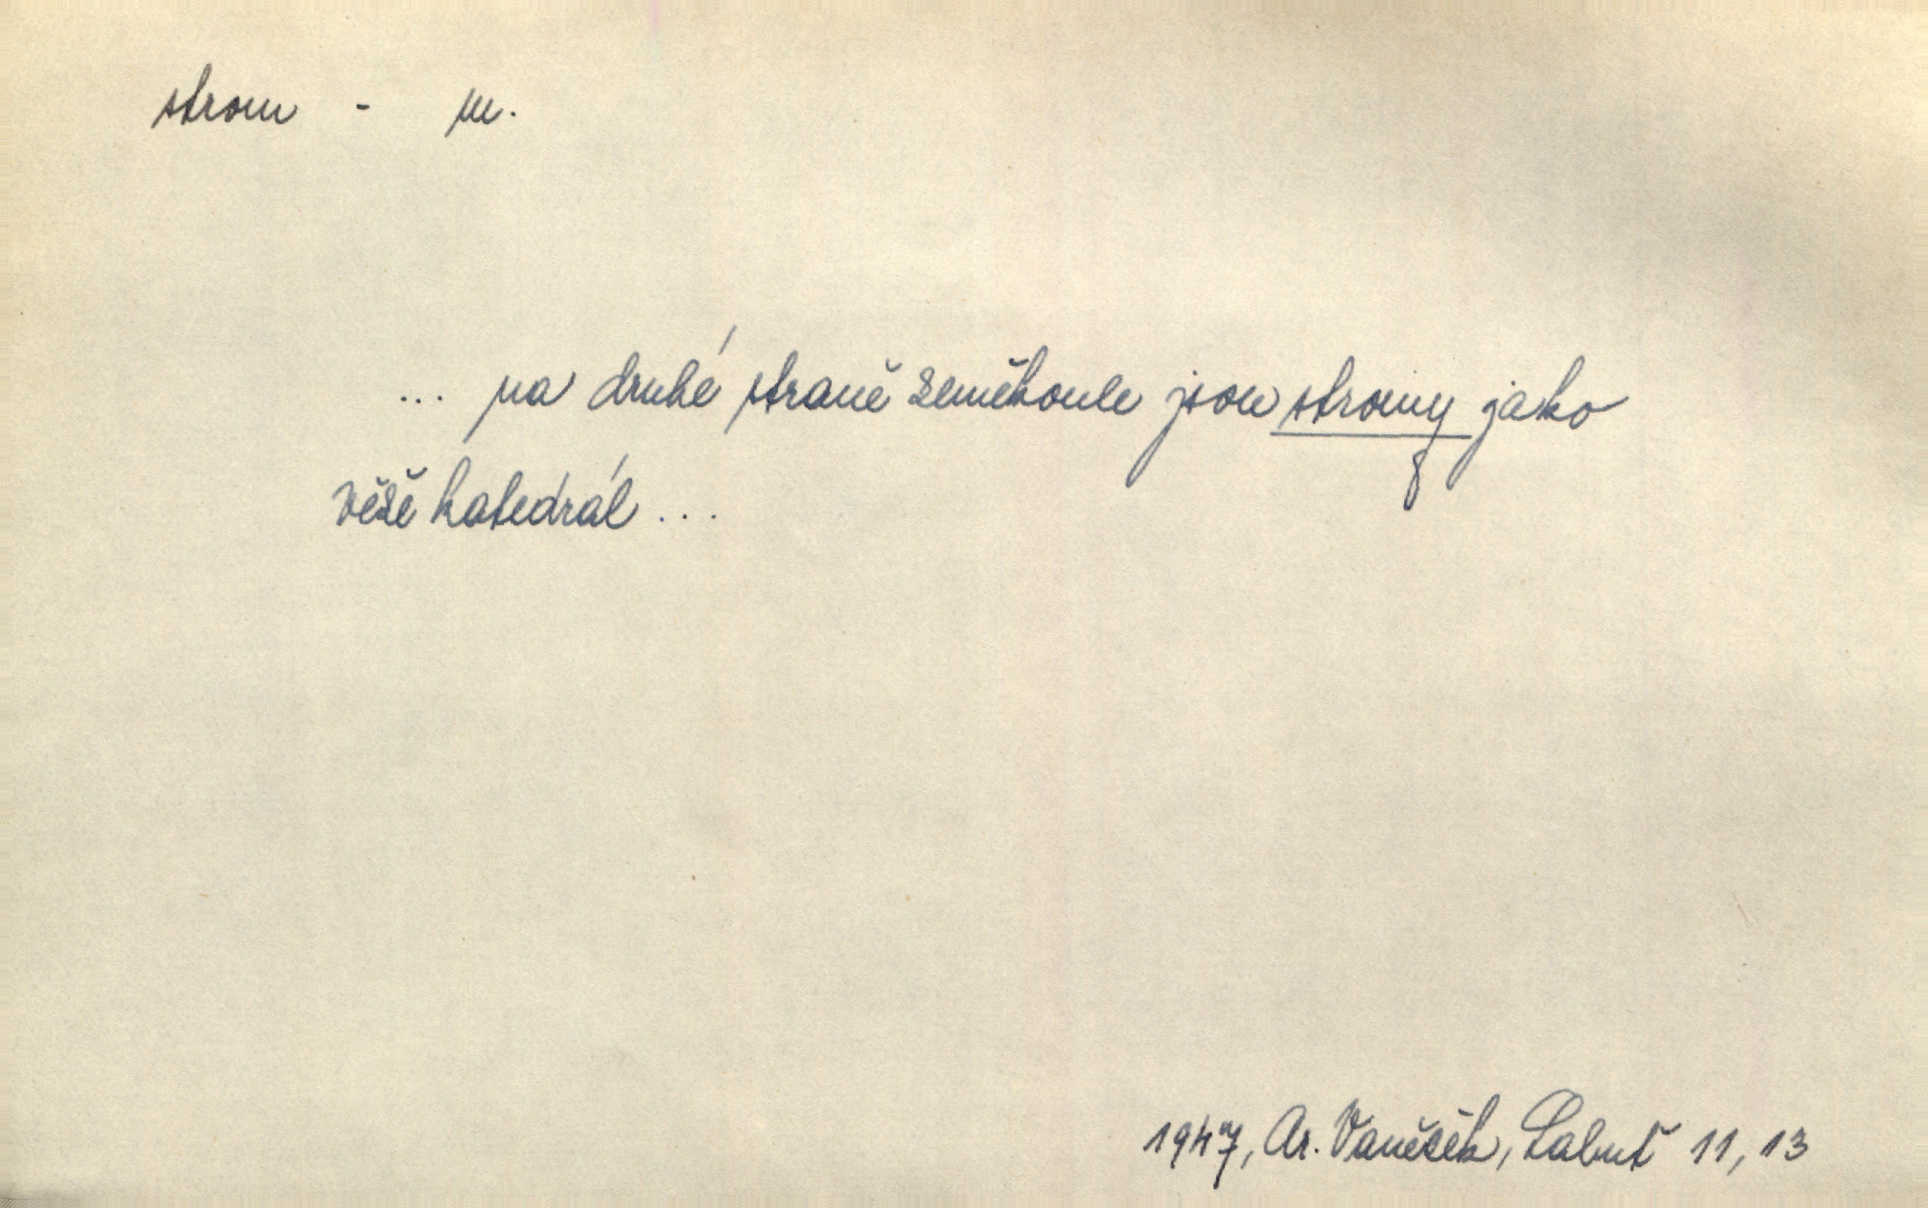 strom - m.
... na druhé straně zeměkoule jsou stromy jako
věže katedrál ...
1947, Ar. Vaněček, Labuť 11, 13